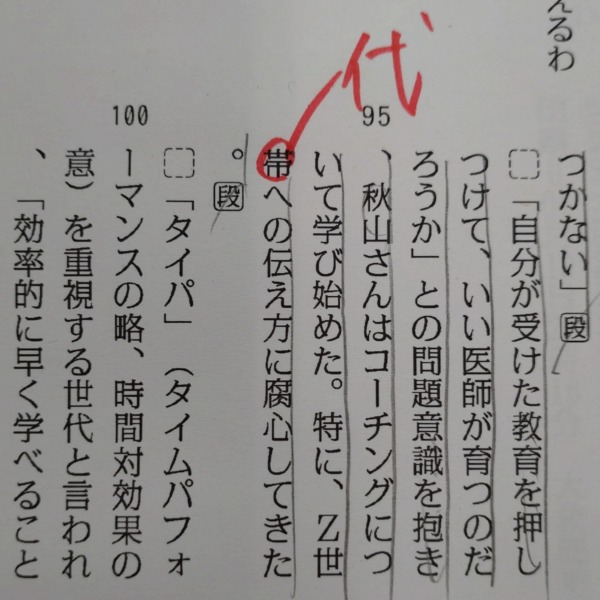 えるわ
つかない」段
「自分が受けた教育を押し
つけて、いい医師が育つのだ
ろうか」との問題意識を抱き
95
、秋山さんはコーチングにつ
いて学び始めた。特に、Z世
代
帯への伝え方に腐心してきた
。段
100
「タイパ」(タイムパフォ
ーマンスの略、時間対効果の
意)を重視する世代と言われ
、「効率的に早く学べること